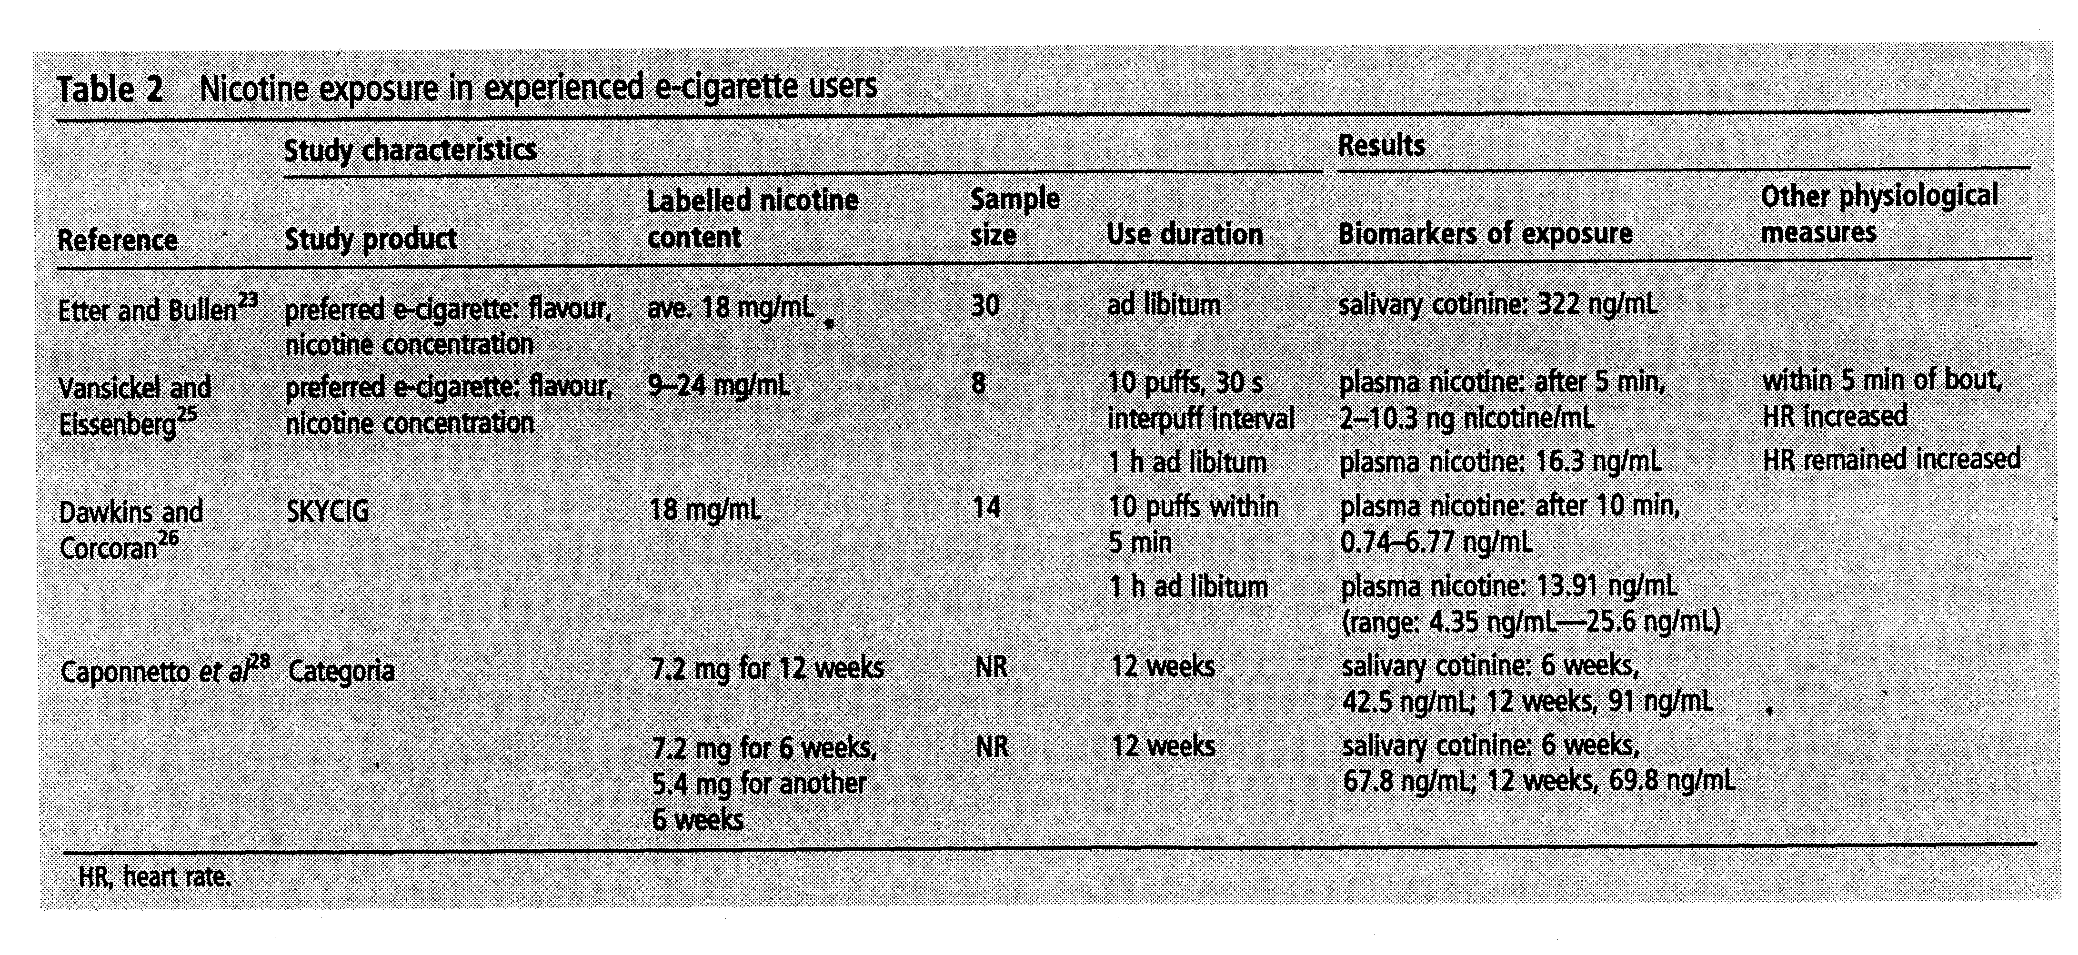 Table 2 Nicotine exposure in experienced e-cigarette users
Study characteristics Results
Reference Study product Labelled nicotine content Sample size Use duration Biomarkers of exposure Other physiological measures
Etter and Bullen23 preferred e-cigarette: flavour, ave. 18 mg/mL 30 ad libitum salivary cotinine: 322 ng/mL
nicotine concentration
Vansickel and preferred e-cigarette: flavour, 9–24 mg/mL 8 10 puffs, 30 s plasma nicotine: after 5 min, within 5 min of bout,
Eissenberg25 nicotine concentration interpuff interval 2–10.3 ng nicotine/mL HR increased
1 h ad libitum plasma nicotine: 16.3 ng/mL HR remained increased
Dawkins and SKYCIG 18 mg/mL 14 10 puffs within plasma nicotine: after 10 min,
Corcoran26 5 min 0.74–6.77 ng/mL
1 h ad libitum plasma nicotine: 13.91 ng/mL
(range: 4.35 ng/mL—25.6 ng/mL)
Caponnetto et al28 Categoria 7.2 mg for 12 weeks NR 12 weeks salivary cotinine: 6 weeks,
42.5 ng/mL; 12 weeks, 91 ng/mL
7.2 mg for 6 weeks, NR 12 weeks salivary cotinine: 6 weeks,
5.4 mg for another 67.8 ng/mL; 12 weeks, 69.8 ng/mL
6 weeks
HR, heart rate.